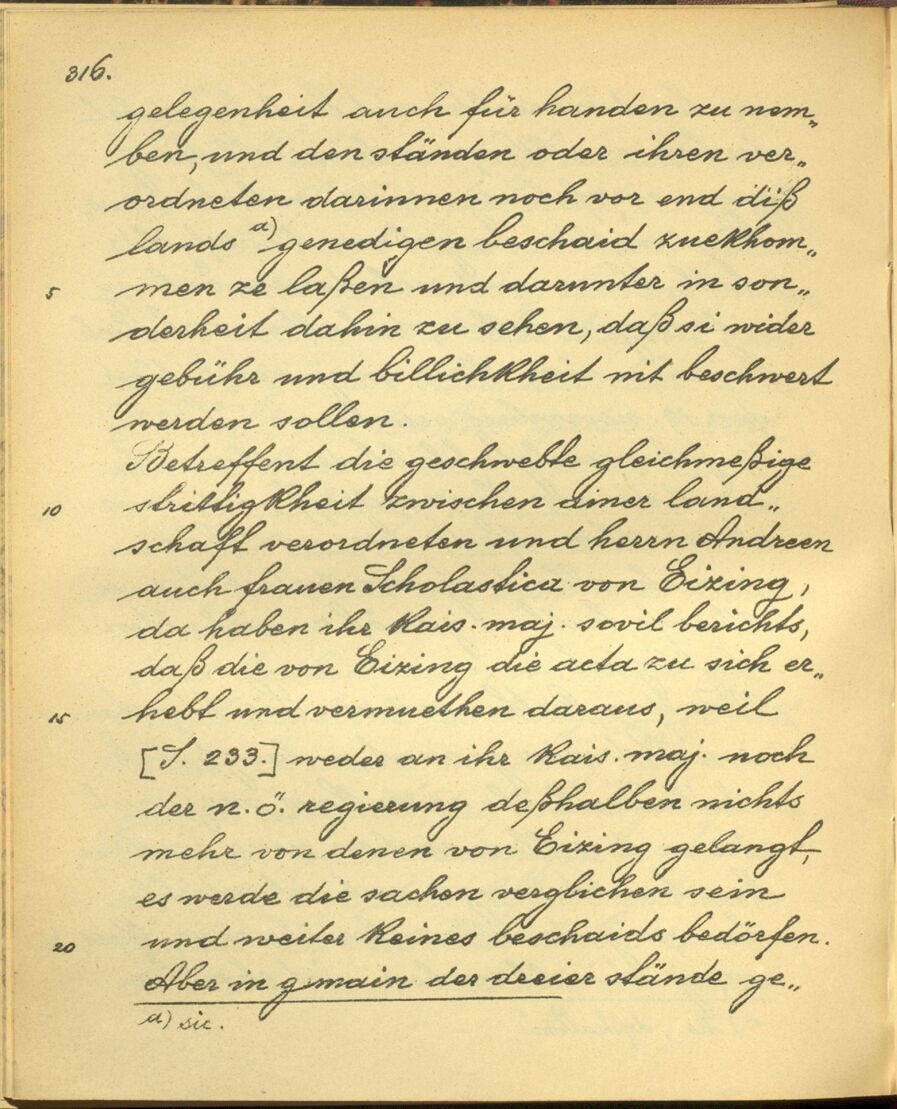 316.
gelegenheit auch für handen zu nem„
ben, und den ständen oder ihren ver„
ordneten darinnen noch vor end diß
lands a) genedigen beschaid zuekhom„
5 men ze laßen und darunter in son„
derheit dahin zu sehen, daß si wider
gebühr und billichkheit nit beschwert
werden sollen.
Betreffent die geschwebte gleichmeßige
10 strittigkheit zwischen ainer land„
schaft verordneten und herrn Andreen
auch frauen Scholastica von Eizing,
da haben ihr kais. maj. sovil berichts,
daß die von Eizing die acta zu sich er„
15 hebt und vermuethen daraus, weil
[S. 233.] weder an ihr kais. maj. noch
der n. ö. regierung deßhalben nichts
mehr von denen von Eizing gelangt,
es werde die sachen verglichen sein
20 und weiter keines beschaids bedörfen.
Aber in gmain der dreier stände ge„
a) sic.